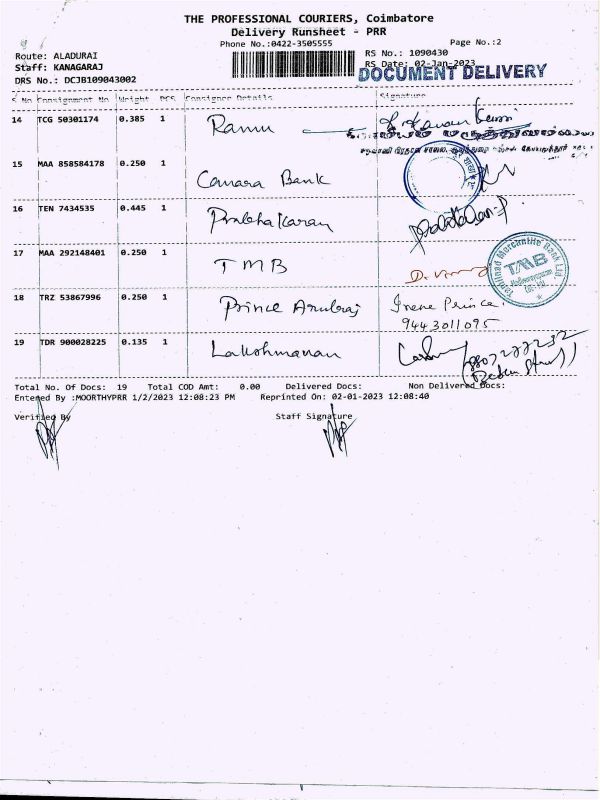 THE PROFESSIONAL COURIERS, Coimbatore
Delivery Runsheet - PRR
Phone No.:0422-3505555
Page No.:2
Route: ALADURAI
RS No.: 1090430
Staff: KANAGARAJ
RS Date: 02-Jan-2023
DRS No.: DCJB109043002
DOCUMENT DELIVERY
S No Consignment No Weight PCS Consignee Details Signature
14 TCG 50301174 0.385 1 Ramu
15 MAA 858584178 0.250 1 Canara Bank
16 TEN 7434535 0.445 1 Prabhakaran
17 MAA 292148401 0.250 1 TMB
Tamilnad Mercantile Bank Ltd.
TMB
18 TRZ 53867996 0.250 1 Prince Arulraj Irene Prince
9443011095
19 TDR 900028225 0.135 1 Lakshmanan
Total No. Of Docs: 19 Total COD Amt: 0.00 Delivered Docs: Non Delivered Docs:
Entered By :MOORTHYPRR 1/2/2023 12:08:23 PM Reprinted On: 02-01-2023 12:08:40
Verified By Staff Signature